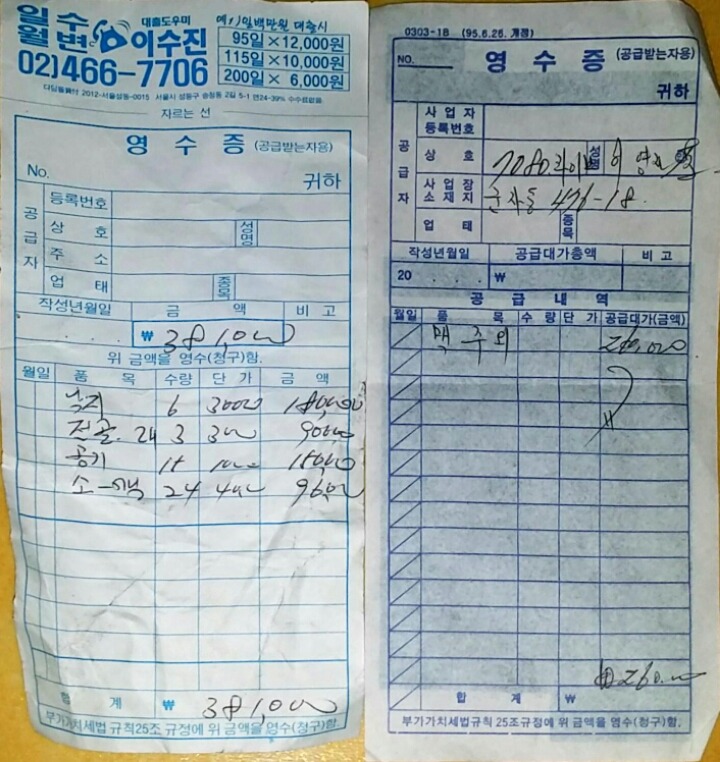 일수
월변
대출도우미
이수진
예1) 일백만원 대출시
95일×12,000원
115일×10,000원
200일× 6,000원
02)466-7706
2012-서울성동-0015 서울시 성동구 송정동 2길 5-1 연24-39% 수수료없음
자르는 선
영수증 (공급받는자용)
No.
귀하
공급자
등록번호
상호
성명
주소
업태
종목
작성년월일 금액 비고
₩ 381,000
위 금액을 영수(청구)함.
월일 품목 수량 단가 금액
낙지 6 30000 180,000
전골. 3 90000
공기 1000
소-맥 24 4000 96,000
합계 ₩ 381,000
부가가치세법 규칙25조 규정에 위 금액을 영수(청구)함.
0303-1B (95.6.26. 개정)
NO.
영수증 (공급받는자용)
귀하
공급자
사업자등록번호
상호 7080라이브 성명
사업장소재지 군자동 476-18.
업태 종목
작성년월일 공급대가총액 비고
20 . . . ₩
공급내역
월일 품목 수량 단가 공급대가(금액)
맥주외 260,000
〃
₩260,000
합계 ₩
부가가치세법규칙 25조규정에 위 금액을 영수(청구)함.